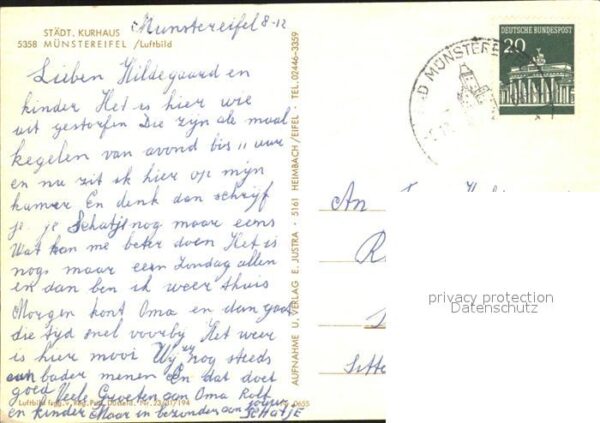 STÄDT. KURHAUS
5358 MÜNSTEREIFEL /Luftbild
Munstereifel 8-12
Lieben Hildegaard en
kinder Het is hier wie
uit gestorfen Die zyn ale maal
kegelen van avond bis 11 uur
en nu zit ik hier op mijn
kamer En denk dan schrijf
je je Schatje nog maar eens
Wat kan me beter doen Het is
nogs maar een Zondag allen
en dan ben ik weer thuis
Morgen komt Oma en dan gaat
die tijd snel voorby Het weer
is hier mooi Wy zy nog steeds
aan bader menen En dat doet
goed Veele Groeten aan Oma Rolf
en kinder Maar in bezonder aan jou
Schatje
AUFNAHME U. VERLAG E. JUSTRA · 5161 HEIMBACH/EIFEL · TEL. 02446-3359
DEUTSCHE BUNDESPOST
20
BAD MÜNSTEREI
An
Sitta
privacy protection
Datenschutz
0655